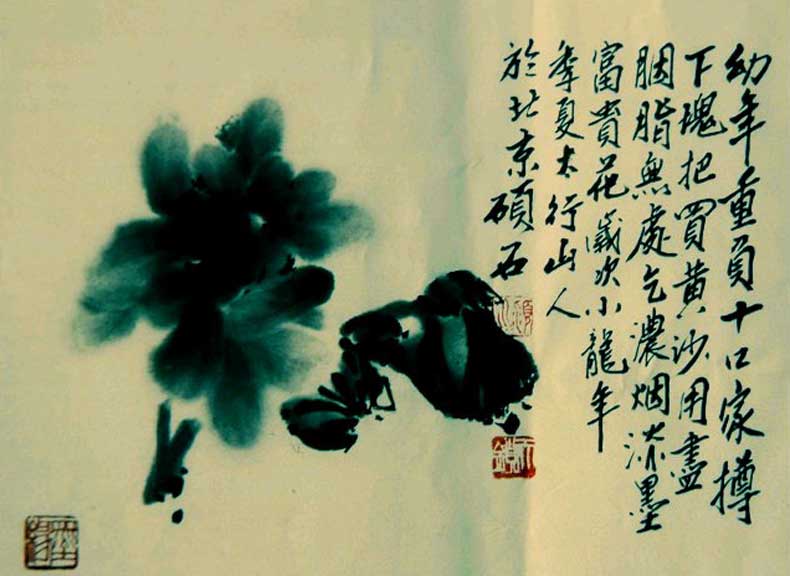 幼年重負十口家撙
下瑰把買黄沙用盡
胭脂無處乞濃烟淡墨
富貴花歲次小龍年
季夏太行山人
於北京碩石